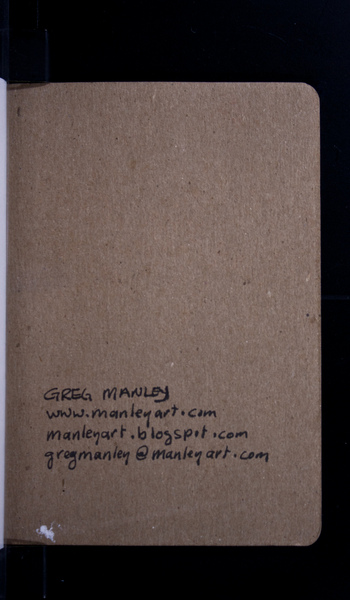 GREG MANLEY
www.manleyart.com
manleyart.blogspot.com
gregmanley@manleyart.com
!